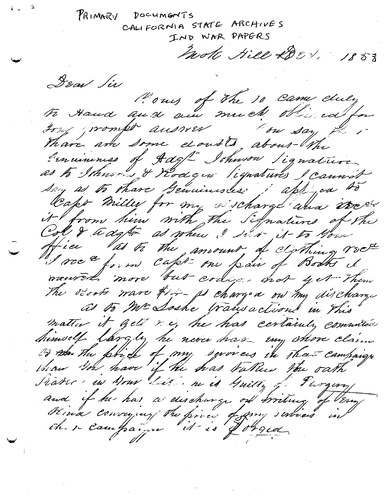 PRIMARY DOCUMENTS
CALIFORNIA STATE ARCHIVES
IND WAR PAPERS
Mok Hill 185
Dear Sir
yours of the 10 came duly
to Hand and am much obliged for
your prompt answer you say
thare are some doubts about the
Genuiness of Adgt Johnson Signature
as to Johnsons & Rodgers Signatures I cannot
say as to thare Genuiness I aplyed to
Capt Milley for my discharge and
it from him with the Signatures of the
Col & Adgt as when I sent it to your
office as to the amount of clothing
I from Capt one pair of Boots I
more but not get them
the Boots ware charged on my discharge
as to Mr transactions in this
matter it he has certainly commited
himself largly he never has any more claim
to the price of my services in that campaign
than You have if he has taken the oath
Stated in Your he is Guilty of Purgery
and if he has a discharge or writing of Eny
Kind conveying the price of my services in
campaign it is forged